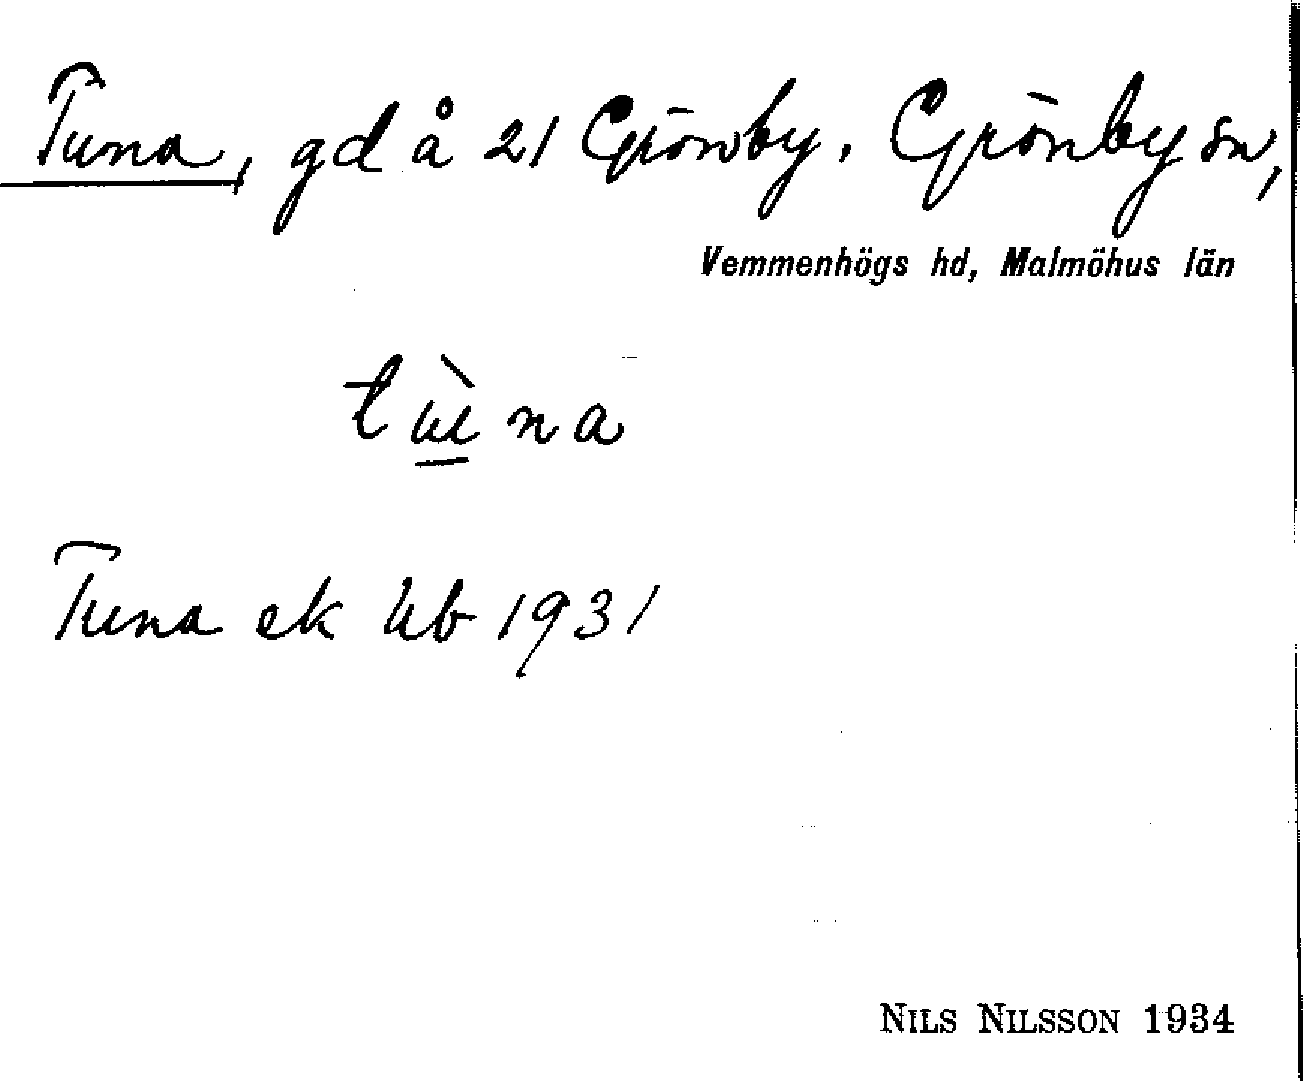 Tuna, gd å 21 Grönby. Grönby sn,
Vemmenhögs hd, Malmöhus län
tɯ̀na
Tuna ek Ub 1931
NILS NILSSON 1934